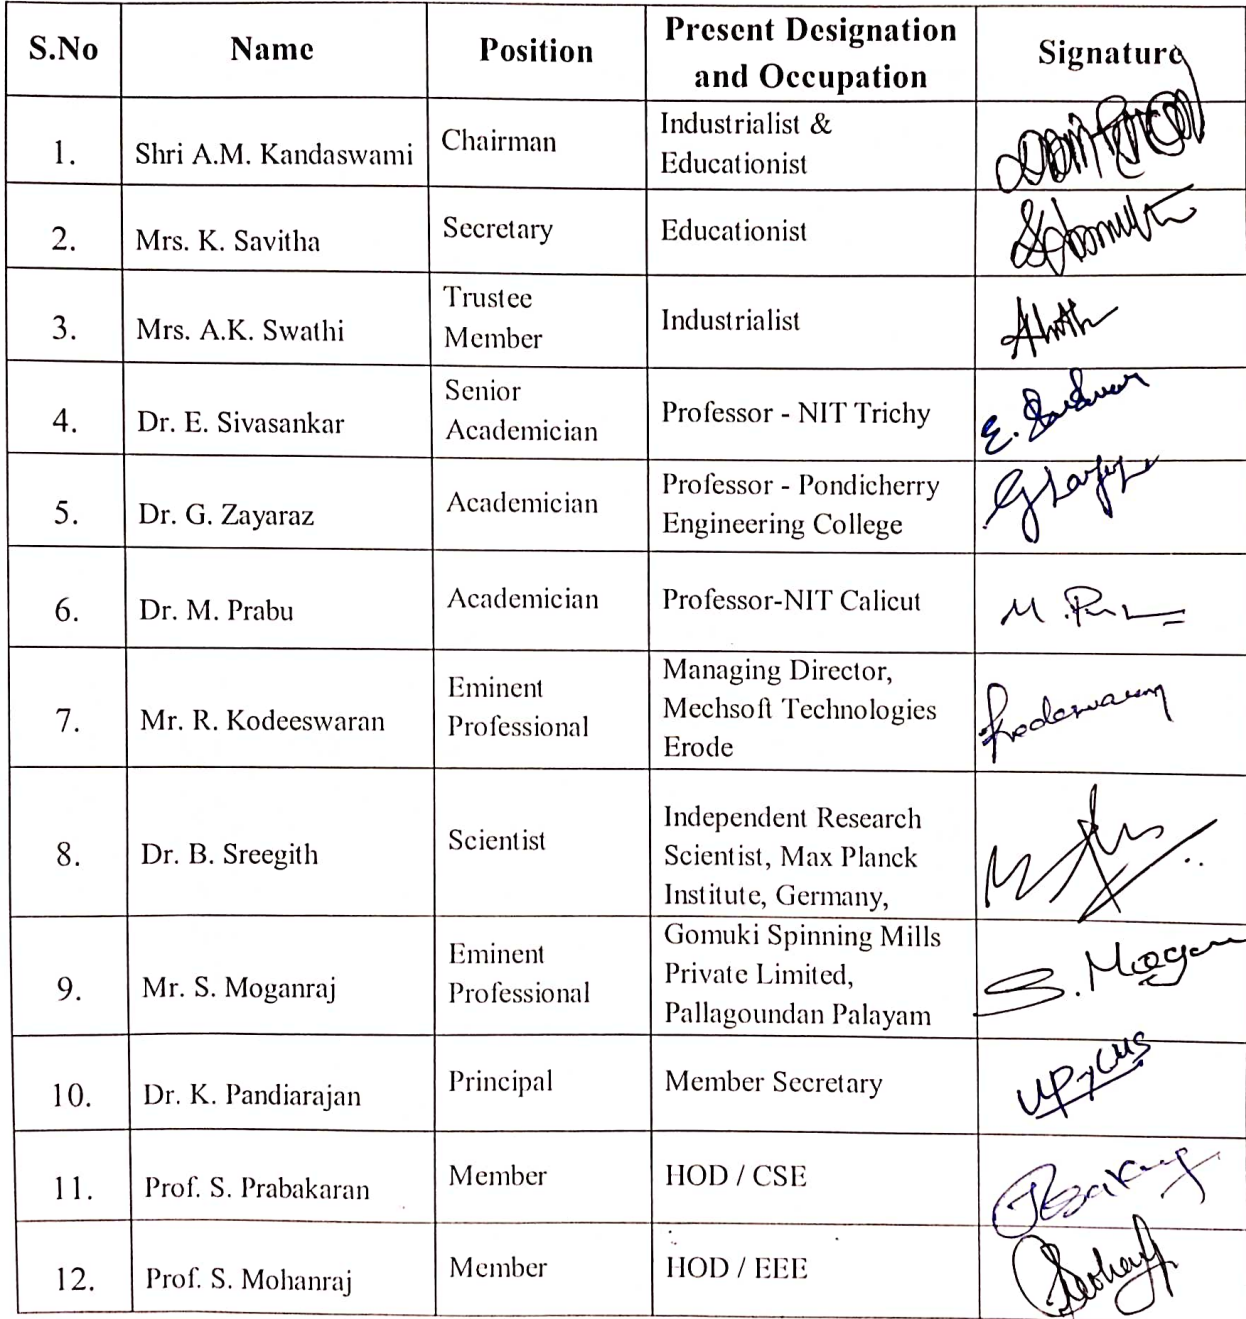 S.No Name Position Present Designation and Occupation Signature
1. Shri A.M. Kandaswami Chairman Industrialist &
Educationist
2. Mrs. K. Savitha Secretary Educationist
3. Mrs. A.K. Swathi Trustee
Member Industrialist
4. Dr. E. Sivasankar Senior
Academician Professor - NIT Trichy
5. Dr. G. Zayaraz Academician Professor - Pondicherry
Engineering College
6. Dr. M. Prabu Academician Professor-NIT Calicut
7. Mr. R. Kodeeswaran Eminent
Professional Managing Director,
Mechsoft Technologies
Erode
8. Dr. B. Sreegith Scientist Independent Research
Scientist, Max Planck
Institute, Germany,
9. Mr. S. Moganraj Eminent
Professional Gomuki Spinning Mills
Private Limited,
Pallagoundan Palayam
10. Dr. K. Pandiarajan Principal Member Secretary
11. Prof. S. Prabakaran Member HOD / CSE
12. Prof. S. Mohanraj Member HOD / EEE